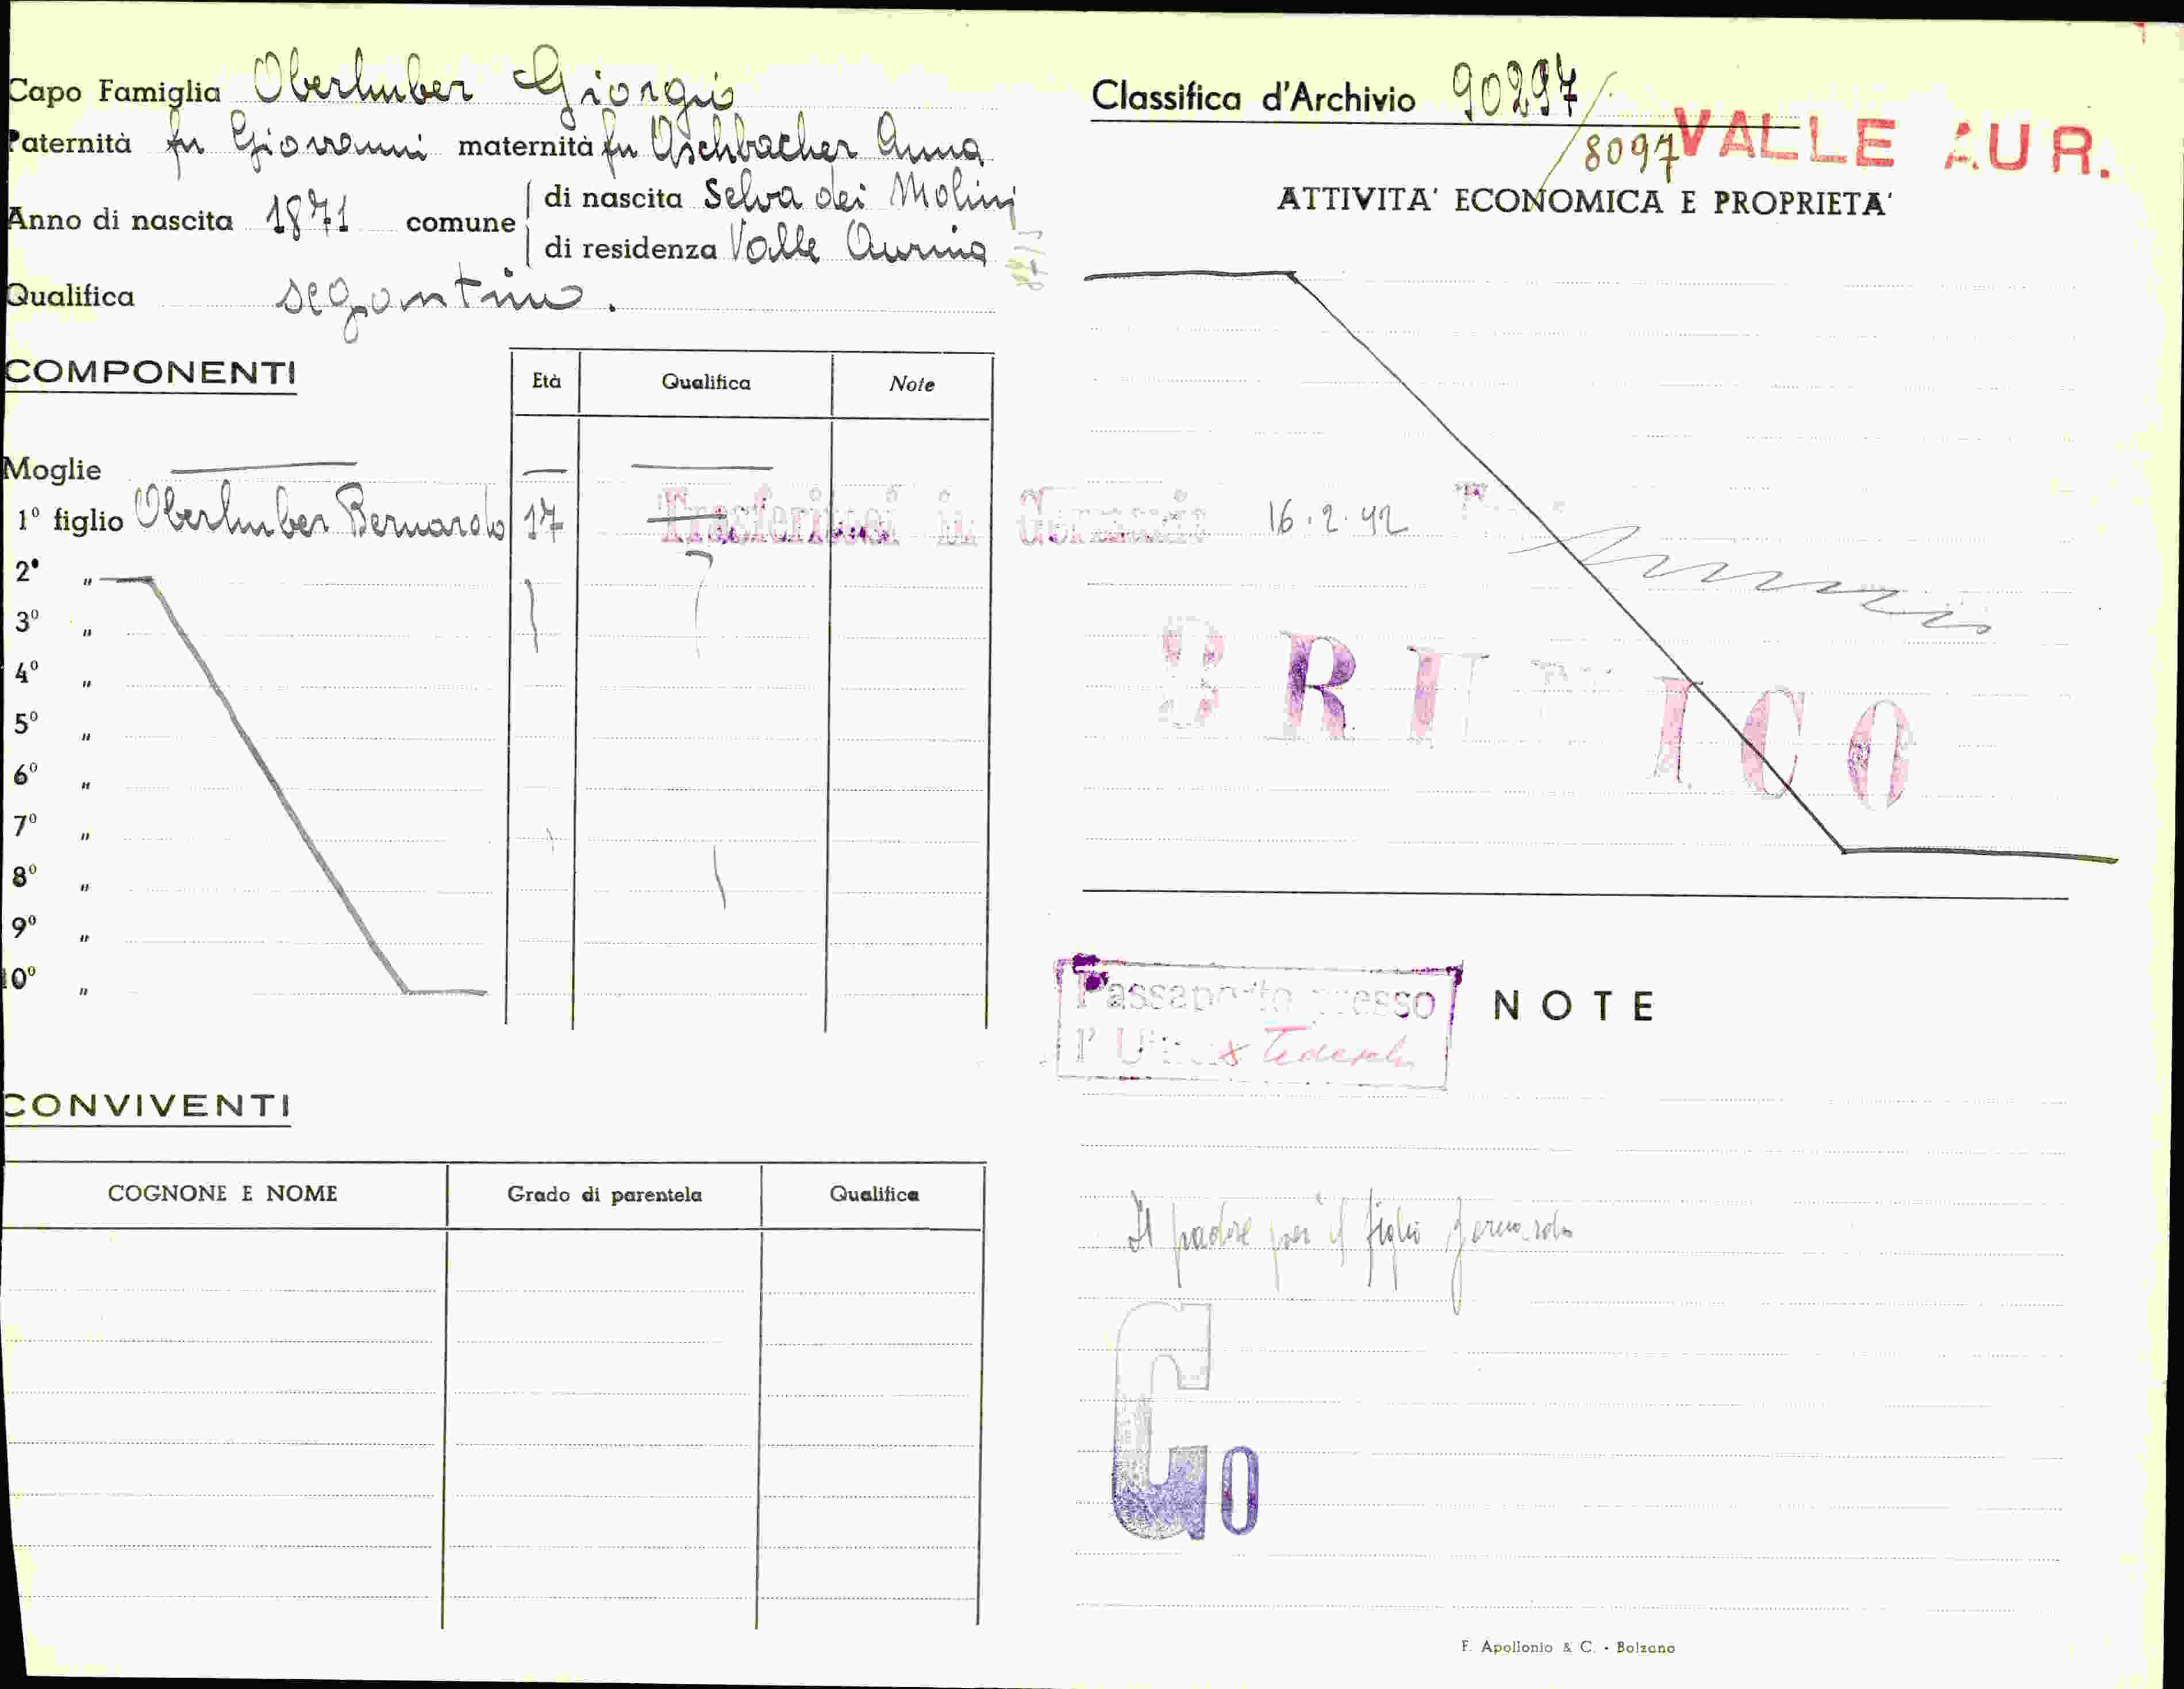 Capo Famiglia Oberhuber Giorgio
Paternità fu Giovanni maternità fu Aschbacher Anna
Anno di nascita 1871 comune
di nascita Selva dei Molini
di residenza Valle Aurina
Qualifica segantino.
COMPONENTI
Età Qualifica Note
Moglie
1º figlio Oberhuber Bernardo 17 Trasferitosi in Germania 16.2.42
2º "
3º "
4º "
5º "
6º "
7º "
8º "
9º "
10º "
CONVIVENTI
COGNONE E NOME Grado di parentela Qualifica
Classifica d'Archivio 90297/
8097 VALLE AUR.
ATTIVITA' ECONOMICA E PROPRIETA'
BRUNICO
Passaporto presso
l'Ufficio Tedesco
NOTE
Il padre per il figlio Bernardo
Go
F. Apollonio & C. - Bolzano